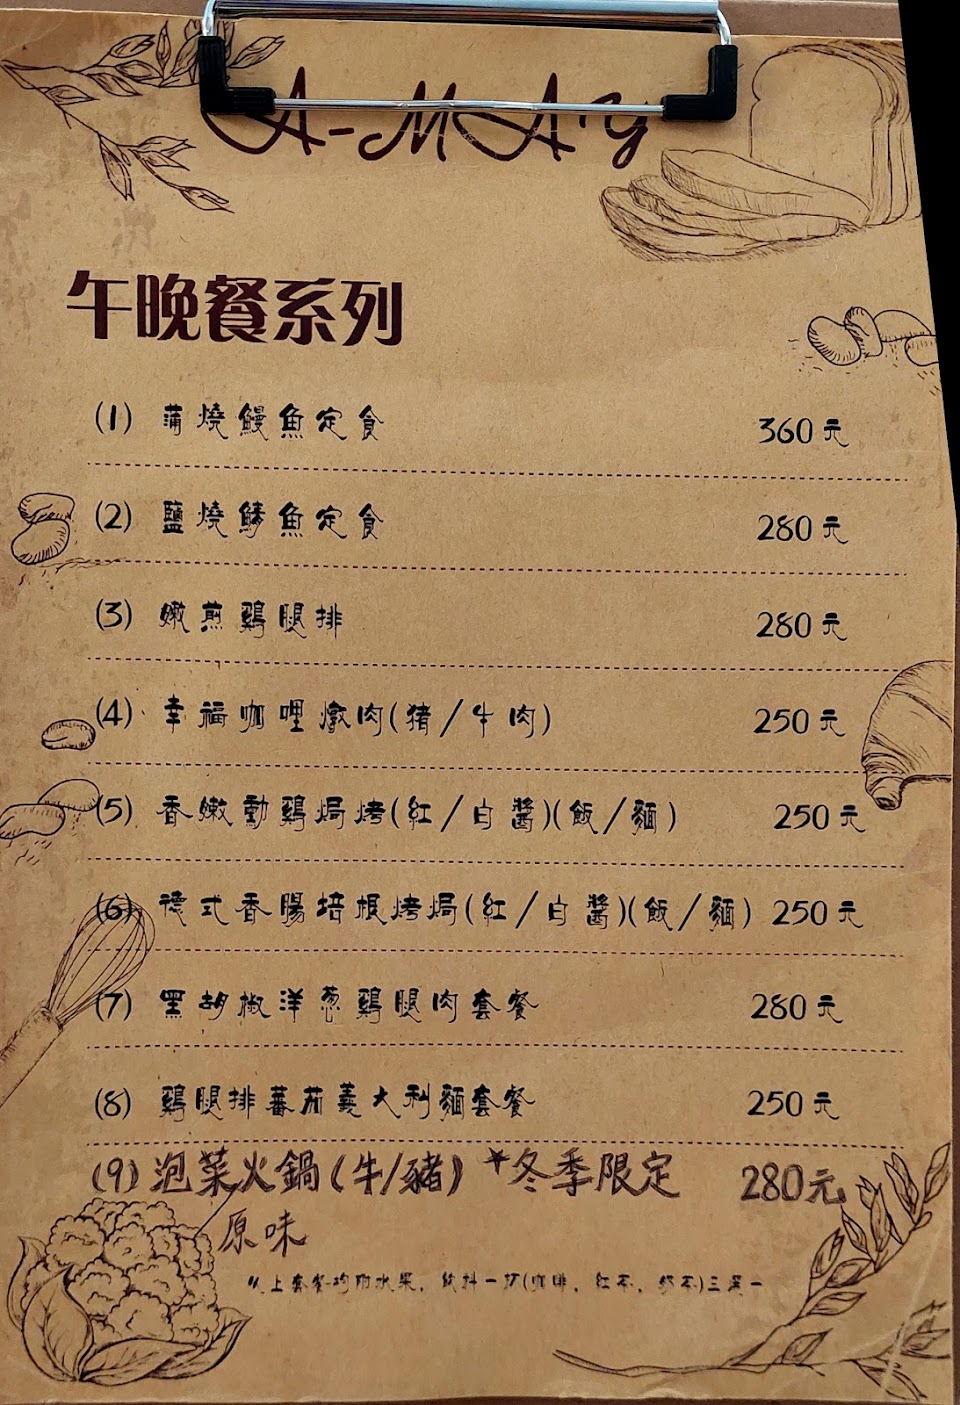 A-MA'y
午晚餐系列
(1) 蒲燒鰻魚定食 360元
(2) 鹽燒鯖魚定食 280元
(3) 嫩煎雞腿排 280元
(4) 幸福咖哩燉肉(猪/牛肉) 250元
(5) 香嫩勤雞焗烤(紅/白醬)(飯/麵) 250元
(6) 德式香腸培根烤焗(紅/白醬)(飯/麵) 250元
(7) 黑胡椒洋蔥雞腿肉套餐 280元
(8) 雞腿排蕃茄義大利麵套餐 250元
(9) 泡菜火鍋(牛/豬) *冬季限定 280元
原味
以上套餐均附水果，飲料一杯(咖啡，紅茶，奶茶)三選一